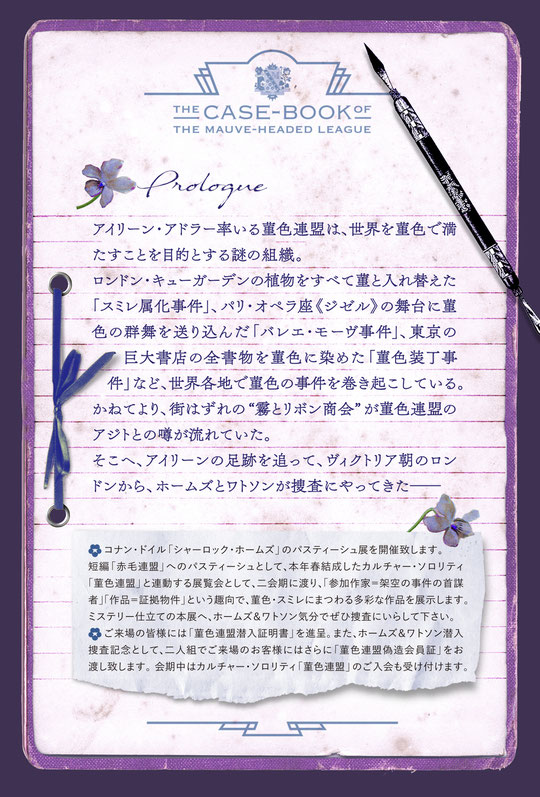 THE CASE-BOOK OF
THE MAUVE-HEADED LEAGUE
Prologue
アイリーン・アドラー率いる菫色連盟は、世界を菫色で満
たすことを目的とする謎の組織。
ロンドン・キューガーデンの植物をすべて菫と入れ替えた
「スミレ属化事件」、パリ・オペラ座《ジゼル》の舞台に菫
色の群舞を送り込んだ「バレエ・モーヴ事件」、東京の
巨大書店の全書物を菫色に染めた「菫色装丁事
件」など、世界各地で菫色の事件を巻き起こしている。
かねてより、街はずれの“霧とリボン商会”が菫色連盟の
アジトとの噂が流れていた。
そこへ、アイリーンの足跡を追って、ヴィクトリア朝のロン
ドンから、ホームズとワトソンが捜査にやってきた──
コナン・ドイル「シャーロック・ホームズ」のパスティーシュ展を開催致します。
短編「赤毛連盟」へのパスティーシュとして、本年春結成したカルチャー・ソロリティ
「菫色連盟」と連動する展覧会として、二会期に渡り、「参加作家=架空の事件の首謀
者」「作品=証拠物件」という趣向で、菫色・スミレにまつわる多彩な作品を展示します。
ミステリー仕立ての本展へ、ホームズ&ワトソン気分でぜひ捜査にいらして下さい。
ご来場の皆様には「菫色連盟潜入証明書」を進呈。また、ホームズ&ワトソン潜入
捜査記念として、二人組でご来場のお客様にはさらに「菫色連盟偽造会員証」をお
渡し致します。会期中はカルチャー・ソロリティ「菫色連盟」のご入会も受け付けます。